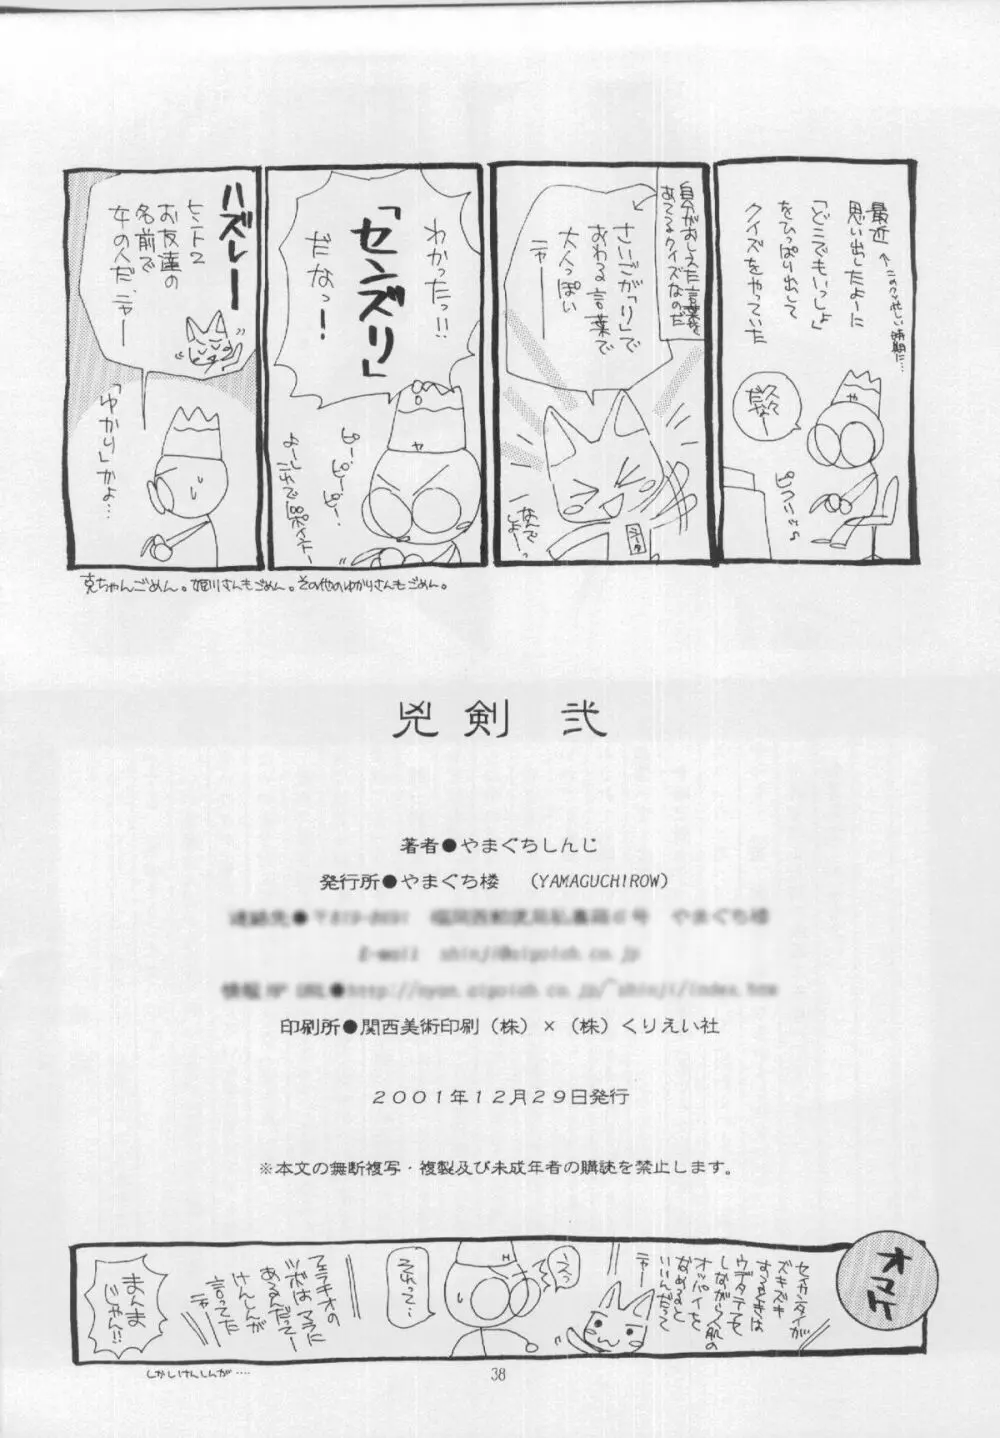 最近
思い出したよーに
「どこでもいっしょ」
をひっぱり出して
クイズをやっていた
←このクソ忙しい時期に…
久々
だなー
や
ピコピコ♪
自分がおしえた言葉を
あてるクイズなのだ
さいごが「り」で
おわる言葉で
大人っぽい
ニャー
なんで
しょー
わかったっ!!
「センズリ」
だなっ!
や
ピー・ピー・ピー…
ハズレー
ヒント2
お友達の
名前で
女の人だニャー
「ゆかり」かよ…
克ちゃんごめん。姫川さんもごめん。その他のゆかりさんもごめん。
兇剣 弐
著者●やまぐちしんじ
発行所●やまぐち楼 (YAMAGUCHIROW)
印刷所●関西美術印刷(株)×(株)くりえい社
2001年12月29日発行
※本文の無断複写・複製及び未成年者の購読を禁止します。
オマケ
セイカンタイが
ズキズキ
するときは
ウデタテ
しながら人肌の
オッパイを
なめると
いいんだって
ニャー
えっ
それって…
フェラチオの
あるんだってー
けんしんが
言ってた
ニャー
まんま
じゃん!!
しかしけんしんが….
38